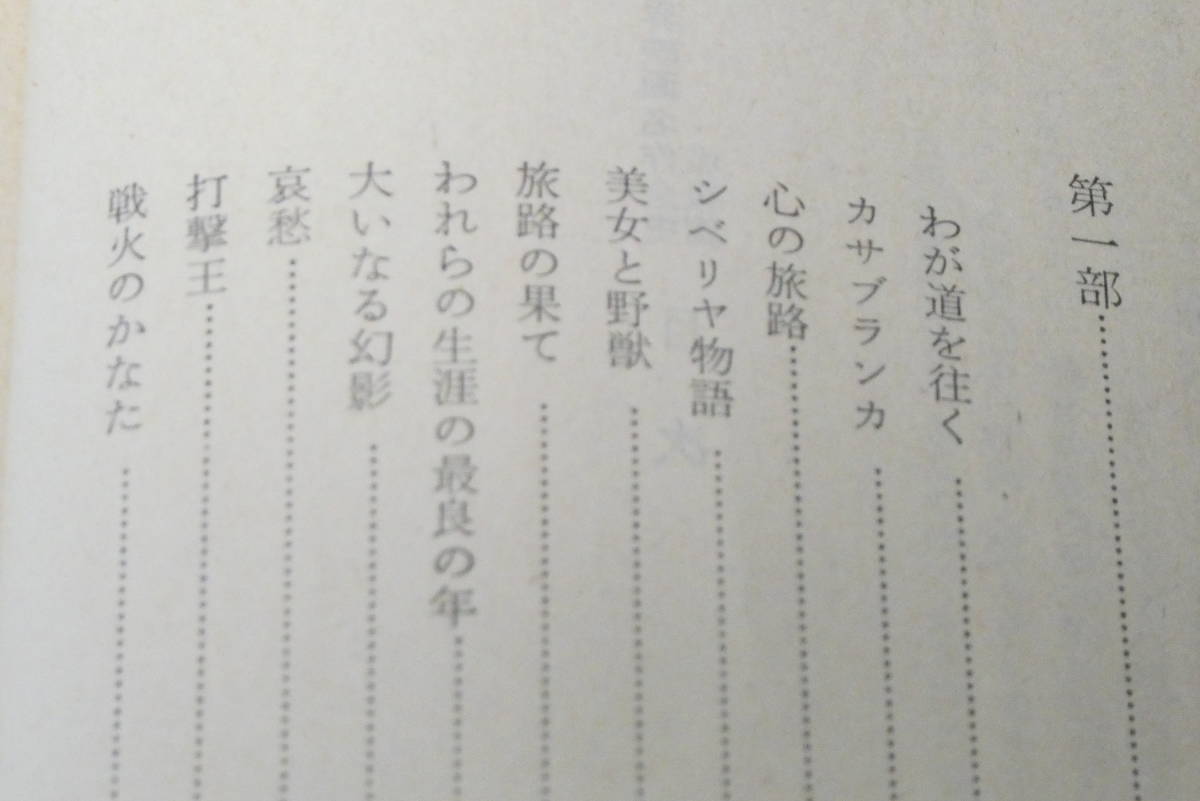 第一部
わが道を往く
カサブランカ
心の旅路
シベリヤ物語
美女と野獣
旅路の果て
われらの生涯の最良の年
大いなる幻影
哀愁
打撃王
戦火のかなた